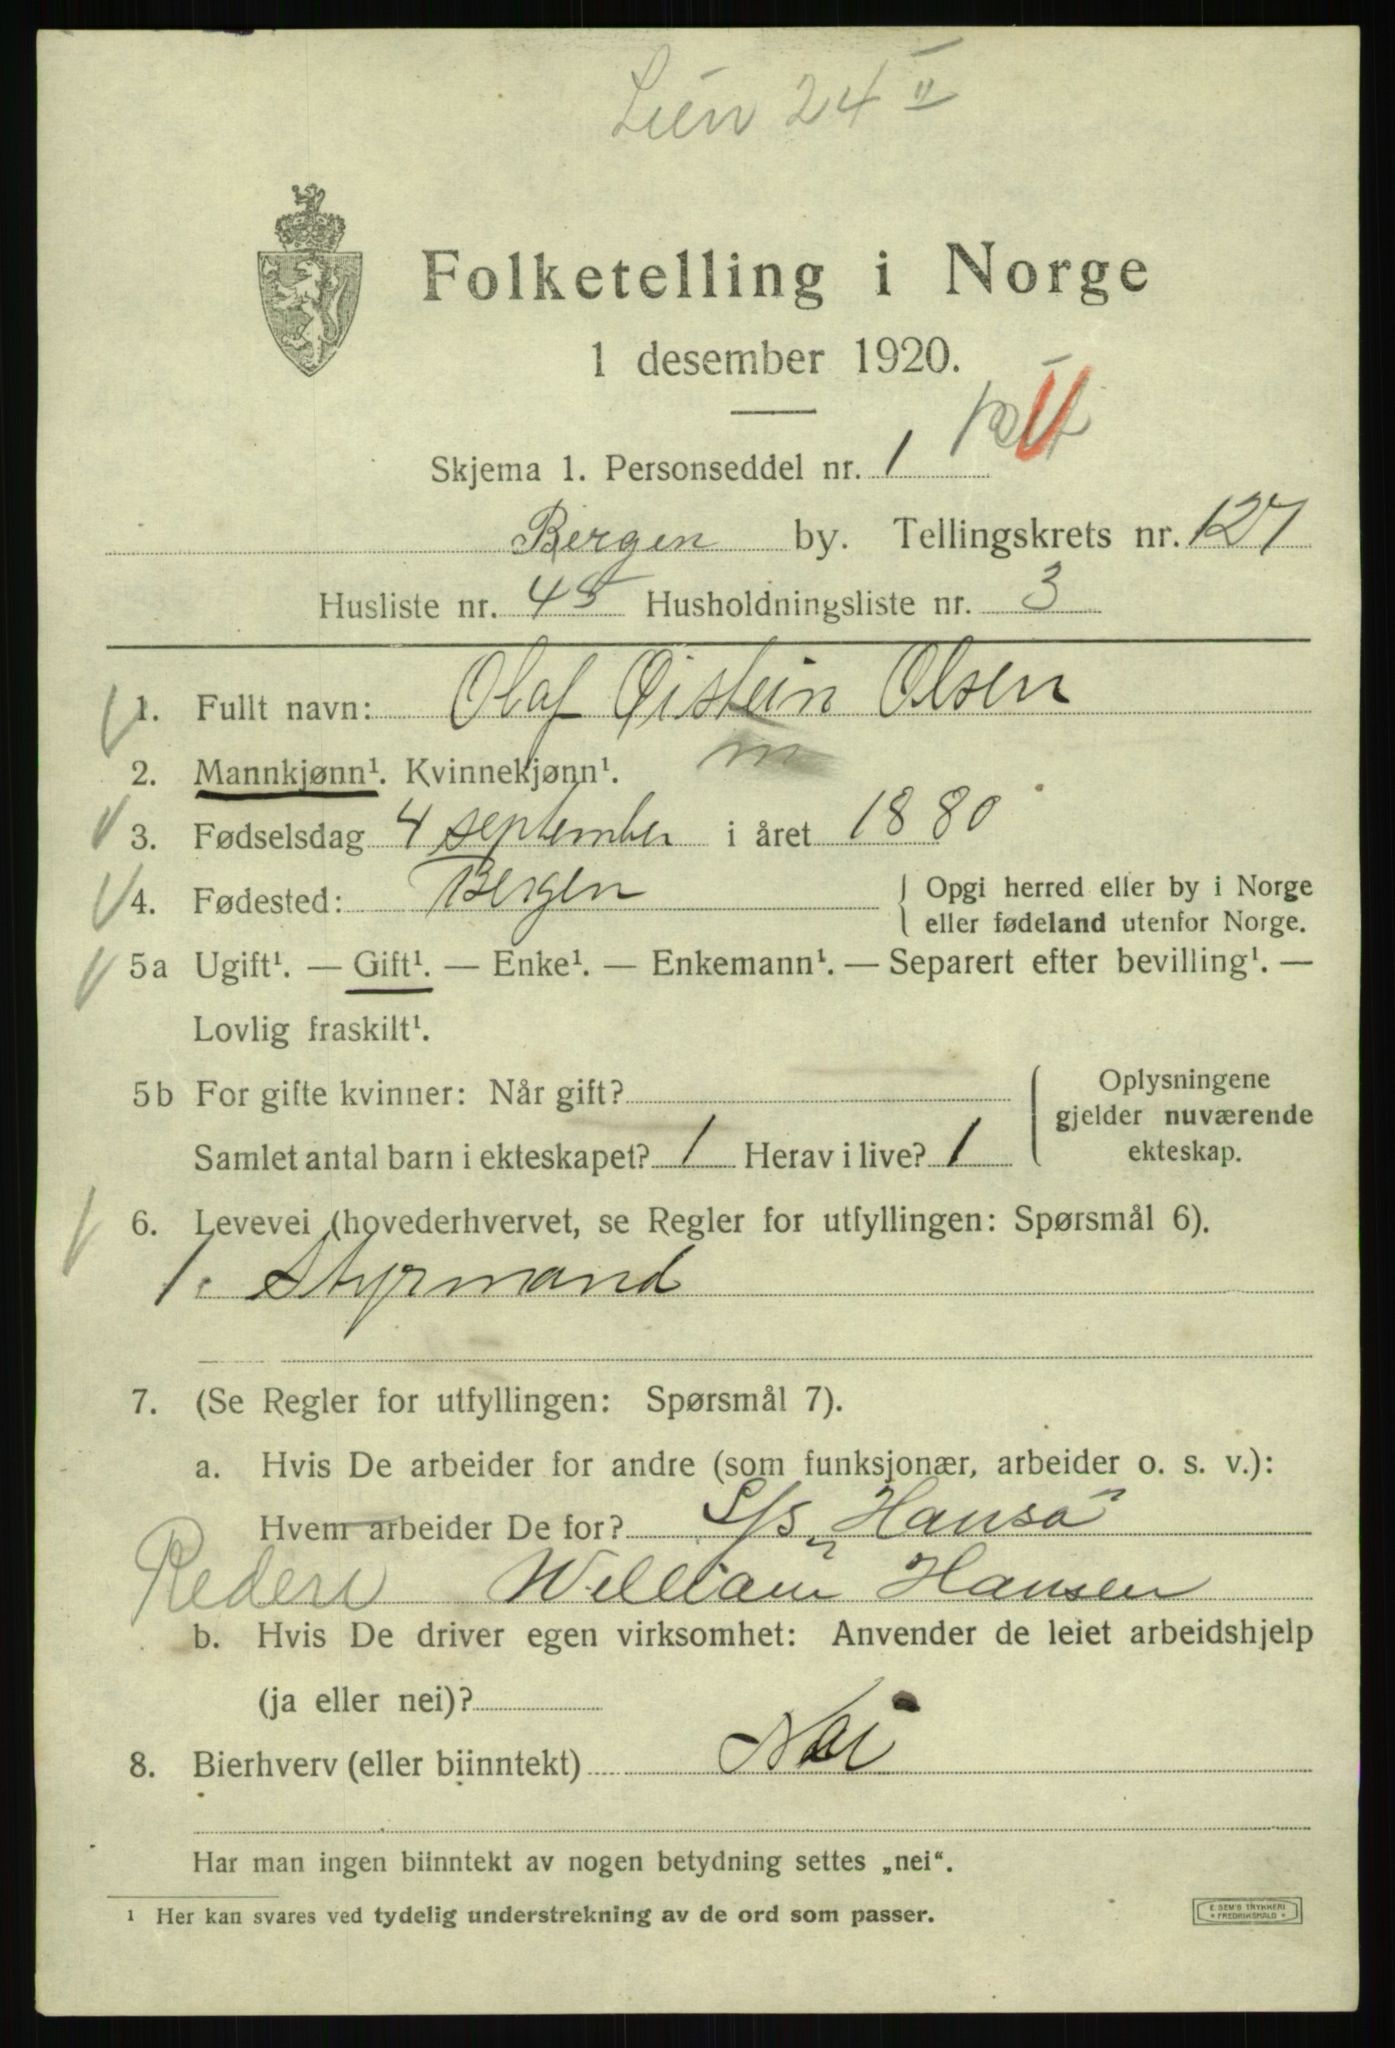 Lien 24 II
Folketelling i Norge
1 desember 1920.
Skjema 1. Personseddel nr. 1
Bergen by. Tellingskrets nr. 127
Husliste nr. 45 Husholdningsliste nr. 3
1. Fullt navn: Olaf Øistein Olsen
2. Mannkjønn¹. Kvinnekjønn¹. m
3. Fødselsdag 4 september i året 1880
4. Fødested: Bergen { Opgi herred eller by i Norge
eller fødeland utenfor Norge.
5a Ugift¹. — Gift¹. — Enke¹. — Enkemann¹. — Separert efter bevilling¹. —
Lovlig fraskilt¹.
5b For gifte kvinner: Når gift?
Samlet antal barn i ekteskapet? 1 Herav i live? 1
Oplysningene
gjelder nuværende
ekteskap.
6. Levevei (hovederhvervet, se Regler for utfyllingen: Spørsmål 6).
1. Styrmand
7. (Se Regler for utfyllingen: Spørsmål 7).
a. Hvis De arbeider for andre (som funksjonær, arbeider o. s. v.):
Hvem arbeider De for? S/S „Hanså"
Rederi William Hansen
b. Hvis De driver egen virksomhet: Anvender de leiet arbeidshjelp
(ja eller nei)?
8. Bierhverv (eller biinntekt) Nei
Har man ingen biinntekt av nogen betydning settes „nei“.
¹ Her kan svares ved tydelig understrekning av de ord som passer.
E. SEM'S TRYKKERI
FREDRIKSHALD